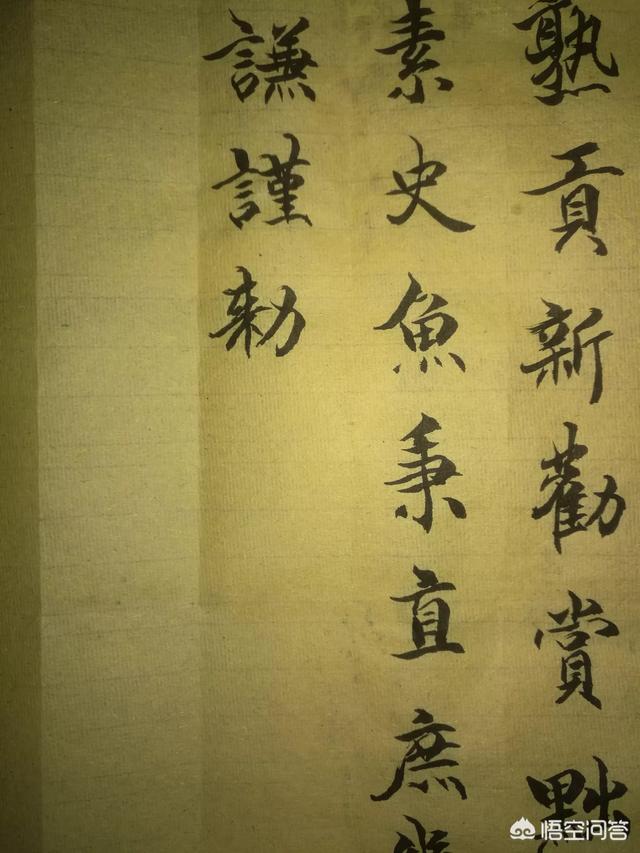 熟貢新勸賞黜
素史魚秉直庶
謙謹勅
悟空问答